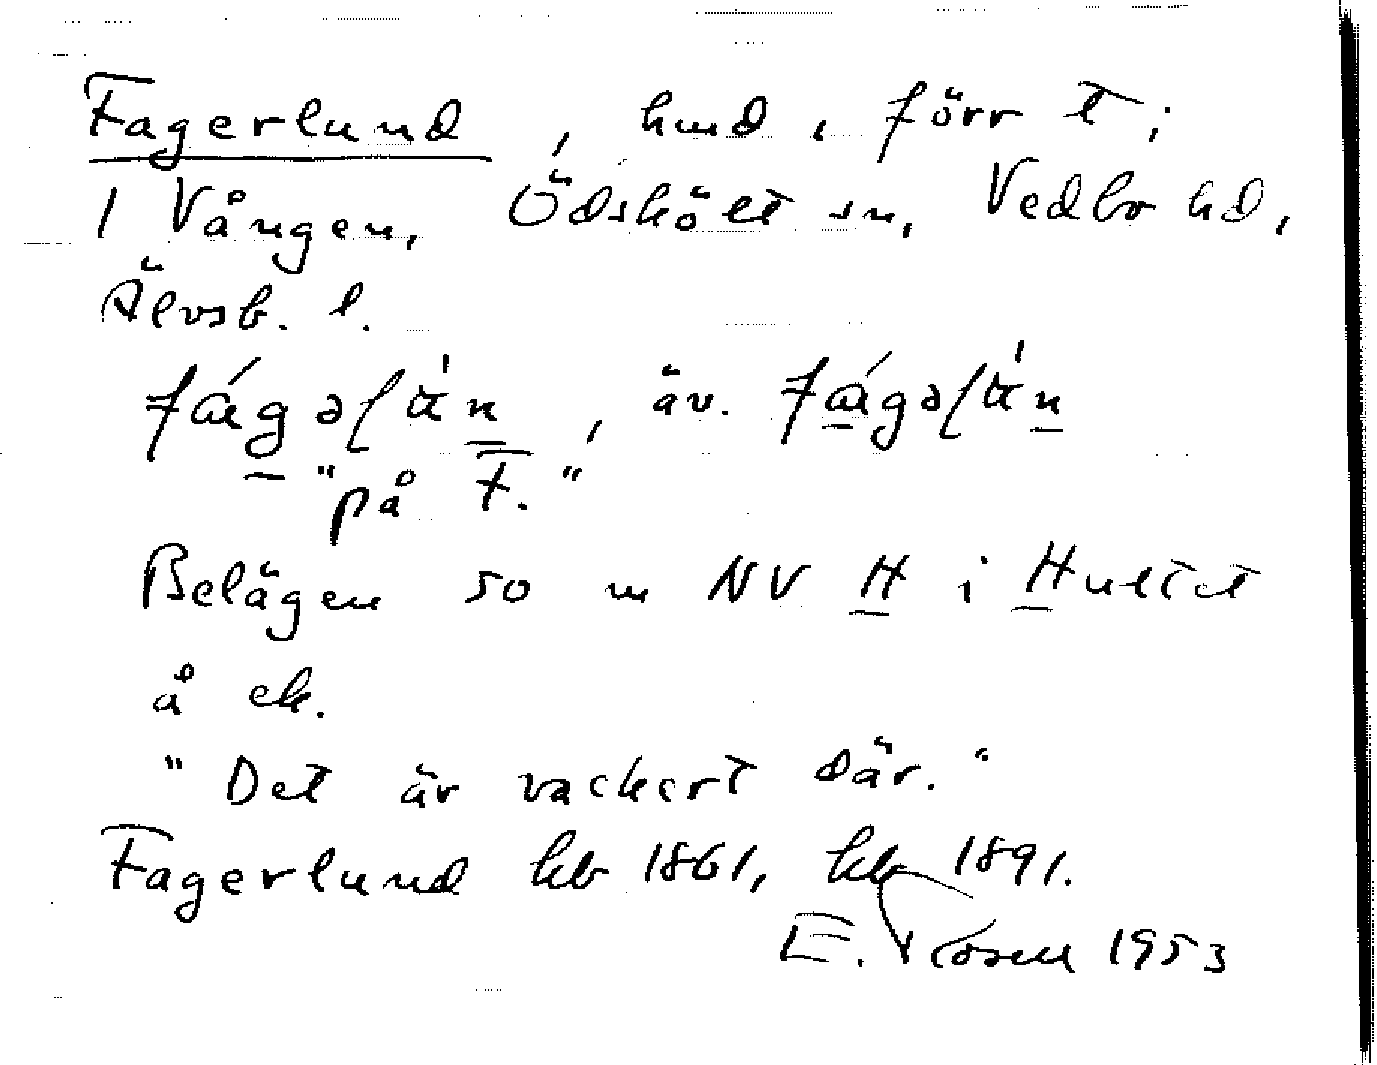 Fagerlund, hmd, förr t;
1 Vången, Ödskölt sn, Vedbo hd,
Älvsb. l.
, äv.
"på F."
Belägen 50 m NV H i Hultet
å ek.
"Det är vackert där."
Fagerlund hb 1861, kb 1891.
E. Rosell 1953